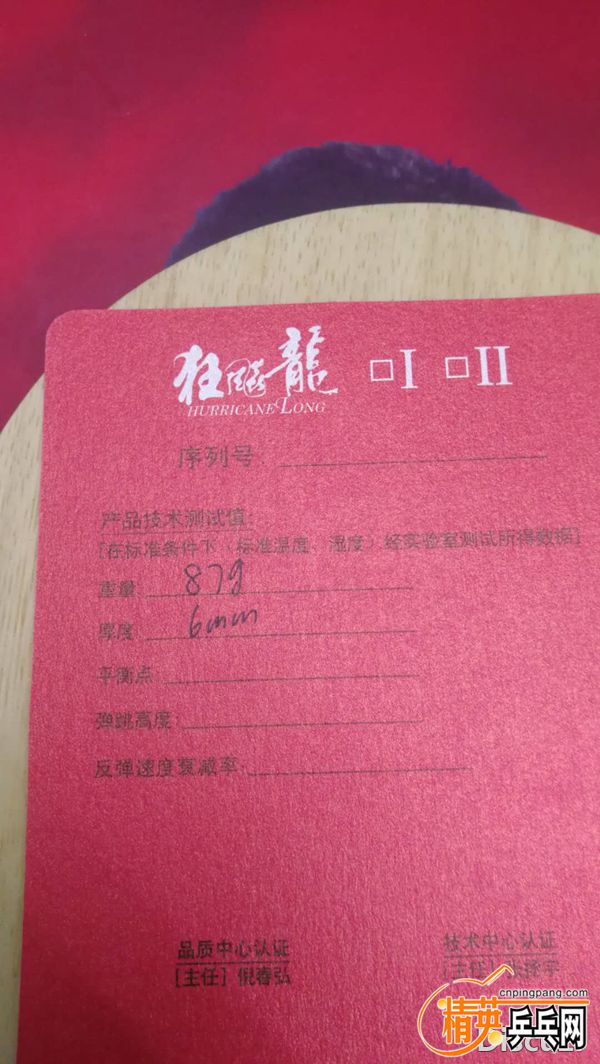 狂飚龍 □I □II
HURRICANE LONG
序列号
产品技术测试值:
[在标准条件下（标准温度、湿度）经实验室测试所得数据]
重量 87g
厚度 6mm
平衡点
弹跳高度:
反弹速度衰减率:
品质中心认证
[主任] 倪春弘
技术中心认证
[主任]
cnpingpang.com
精英乒乓网